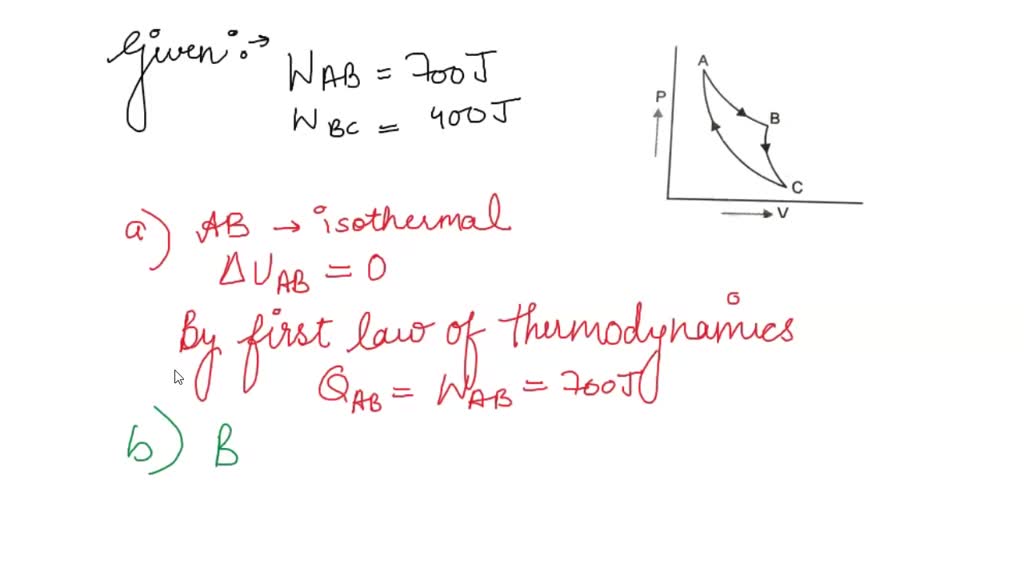 Given :→
W_AB = 700J
W_BC = 400J
A
P
B
C
V
a) AB → isothermal
ΔU_AB = 0
By first law of thermodynamics
Q_AB = W_AB = 700J
b) B